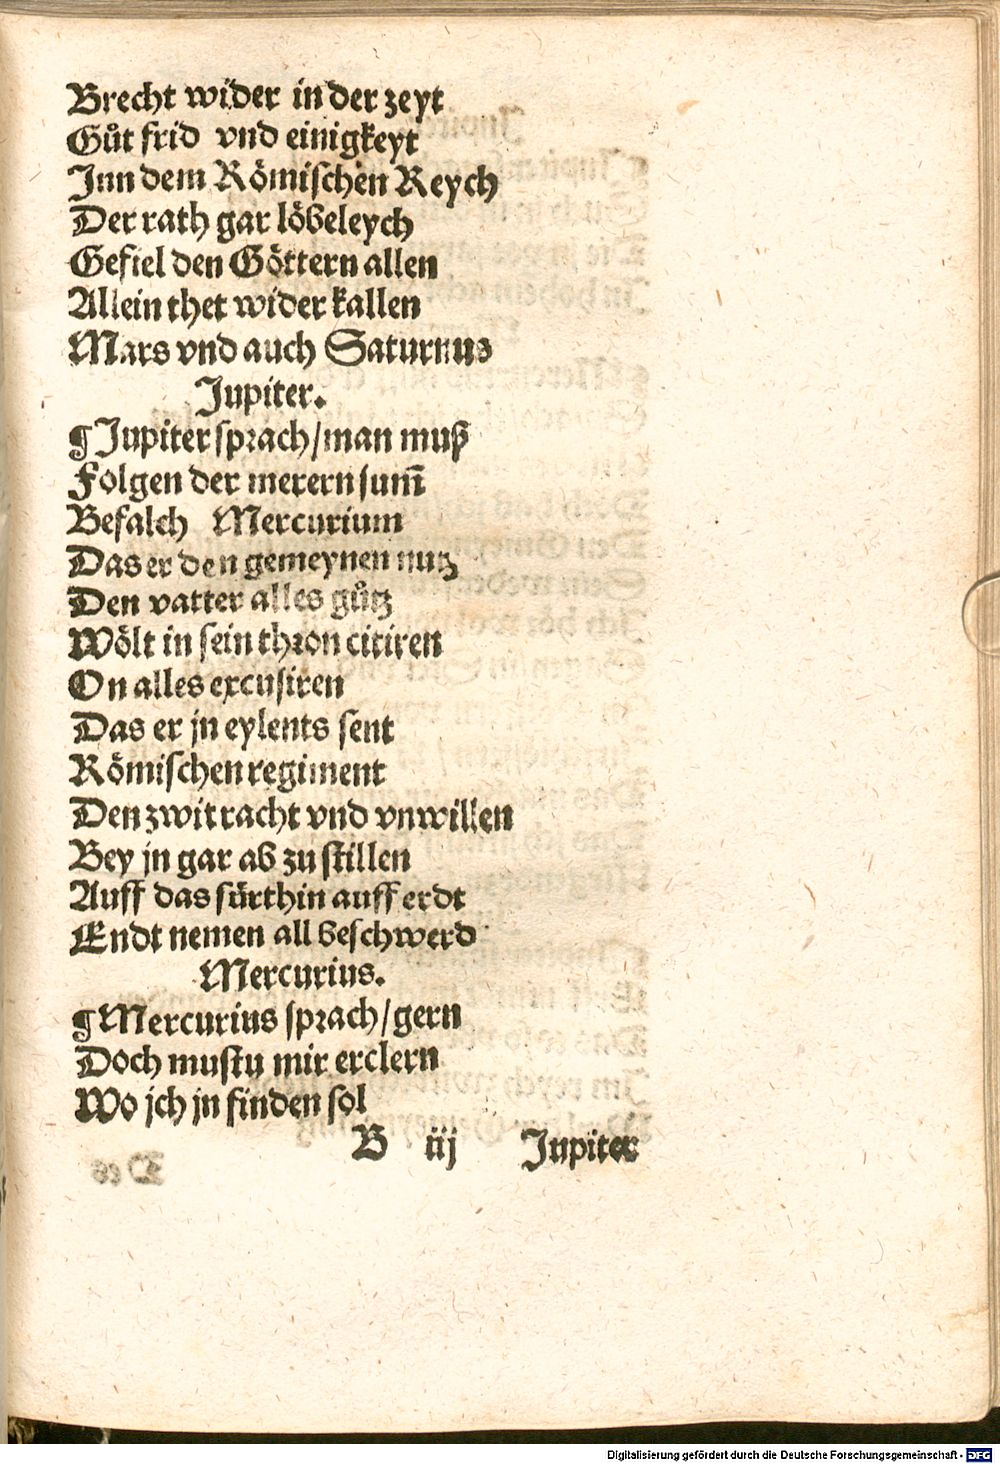 Brecht wider in der zeyt
Guͦt frid vnd einigkeyt
Inn dem Roͤmiſchen Reych
Der rath gar loͤbeleych
Gefiel den Goͤttern allen
Allein thet wider kallen
Mars vnd auch Saturnus
Jupiter.
¶ Jupiter ſprach/man muß
Folgen der merern ſum̃
Befalch Mercurium
Das er den gemeynen nutz
Den vatter alles guͦtz
Woͤlt in ſein thron citiren
On alles excuſiren
Das er jn eylents ſent
Roͤmiſchen regiment
Den zwitracht vnd vnwillen
Bey jn gar ab zu ſtillen
Auff das fuͤrthin auff erdt
Endt nemen all beſchwerd
Mercurius.
¶ Mercurius ſprach/gern
Doch muſtu mir erclern
Wo jch jn finden ſol
B iij Jupiter
Digitalisierung gefördert durch die Deutsche Forschungsgemeinschaft - DFG